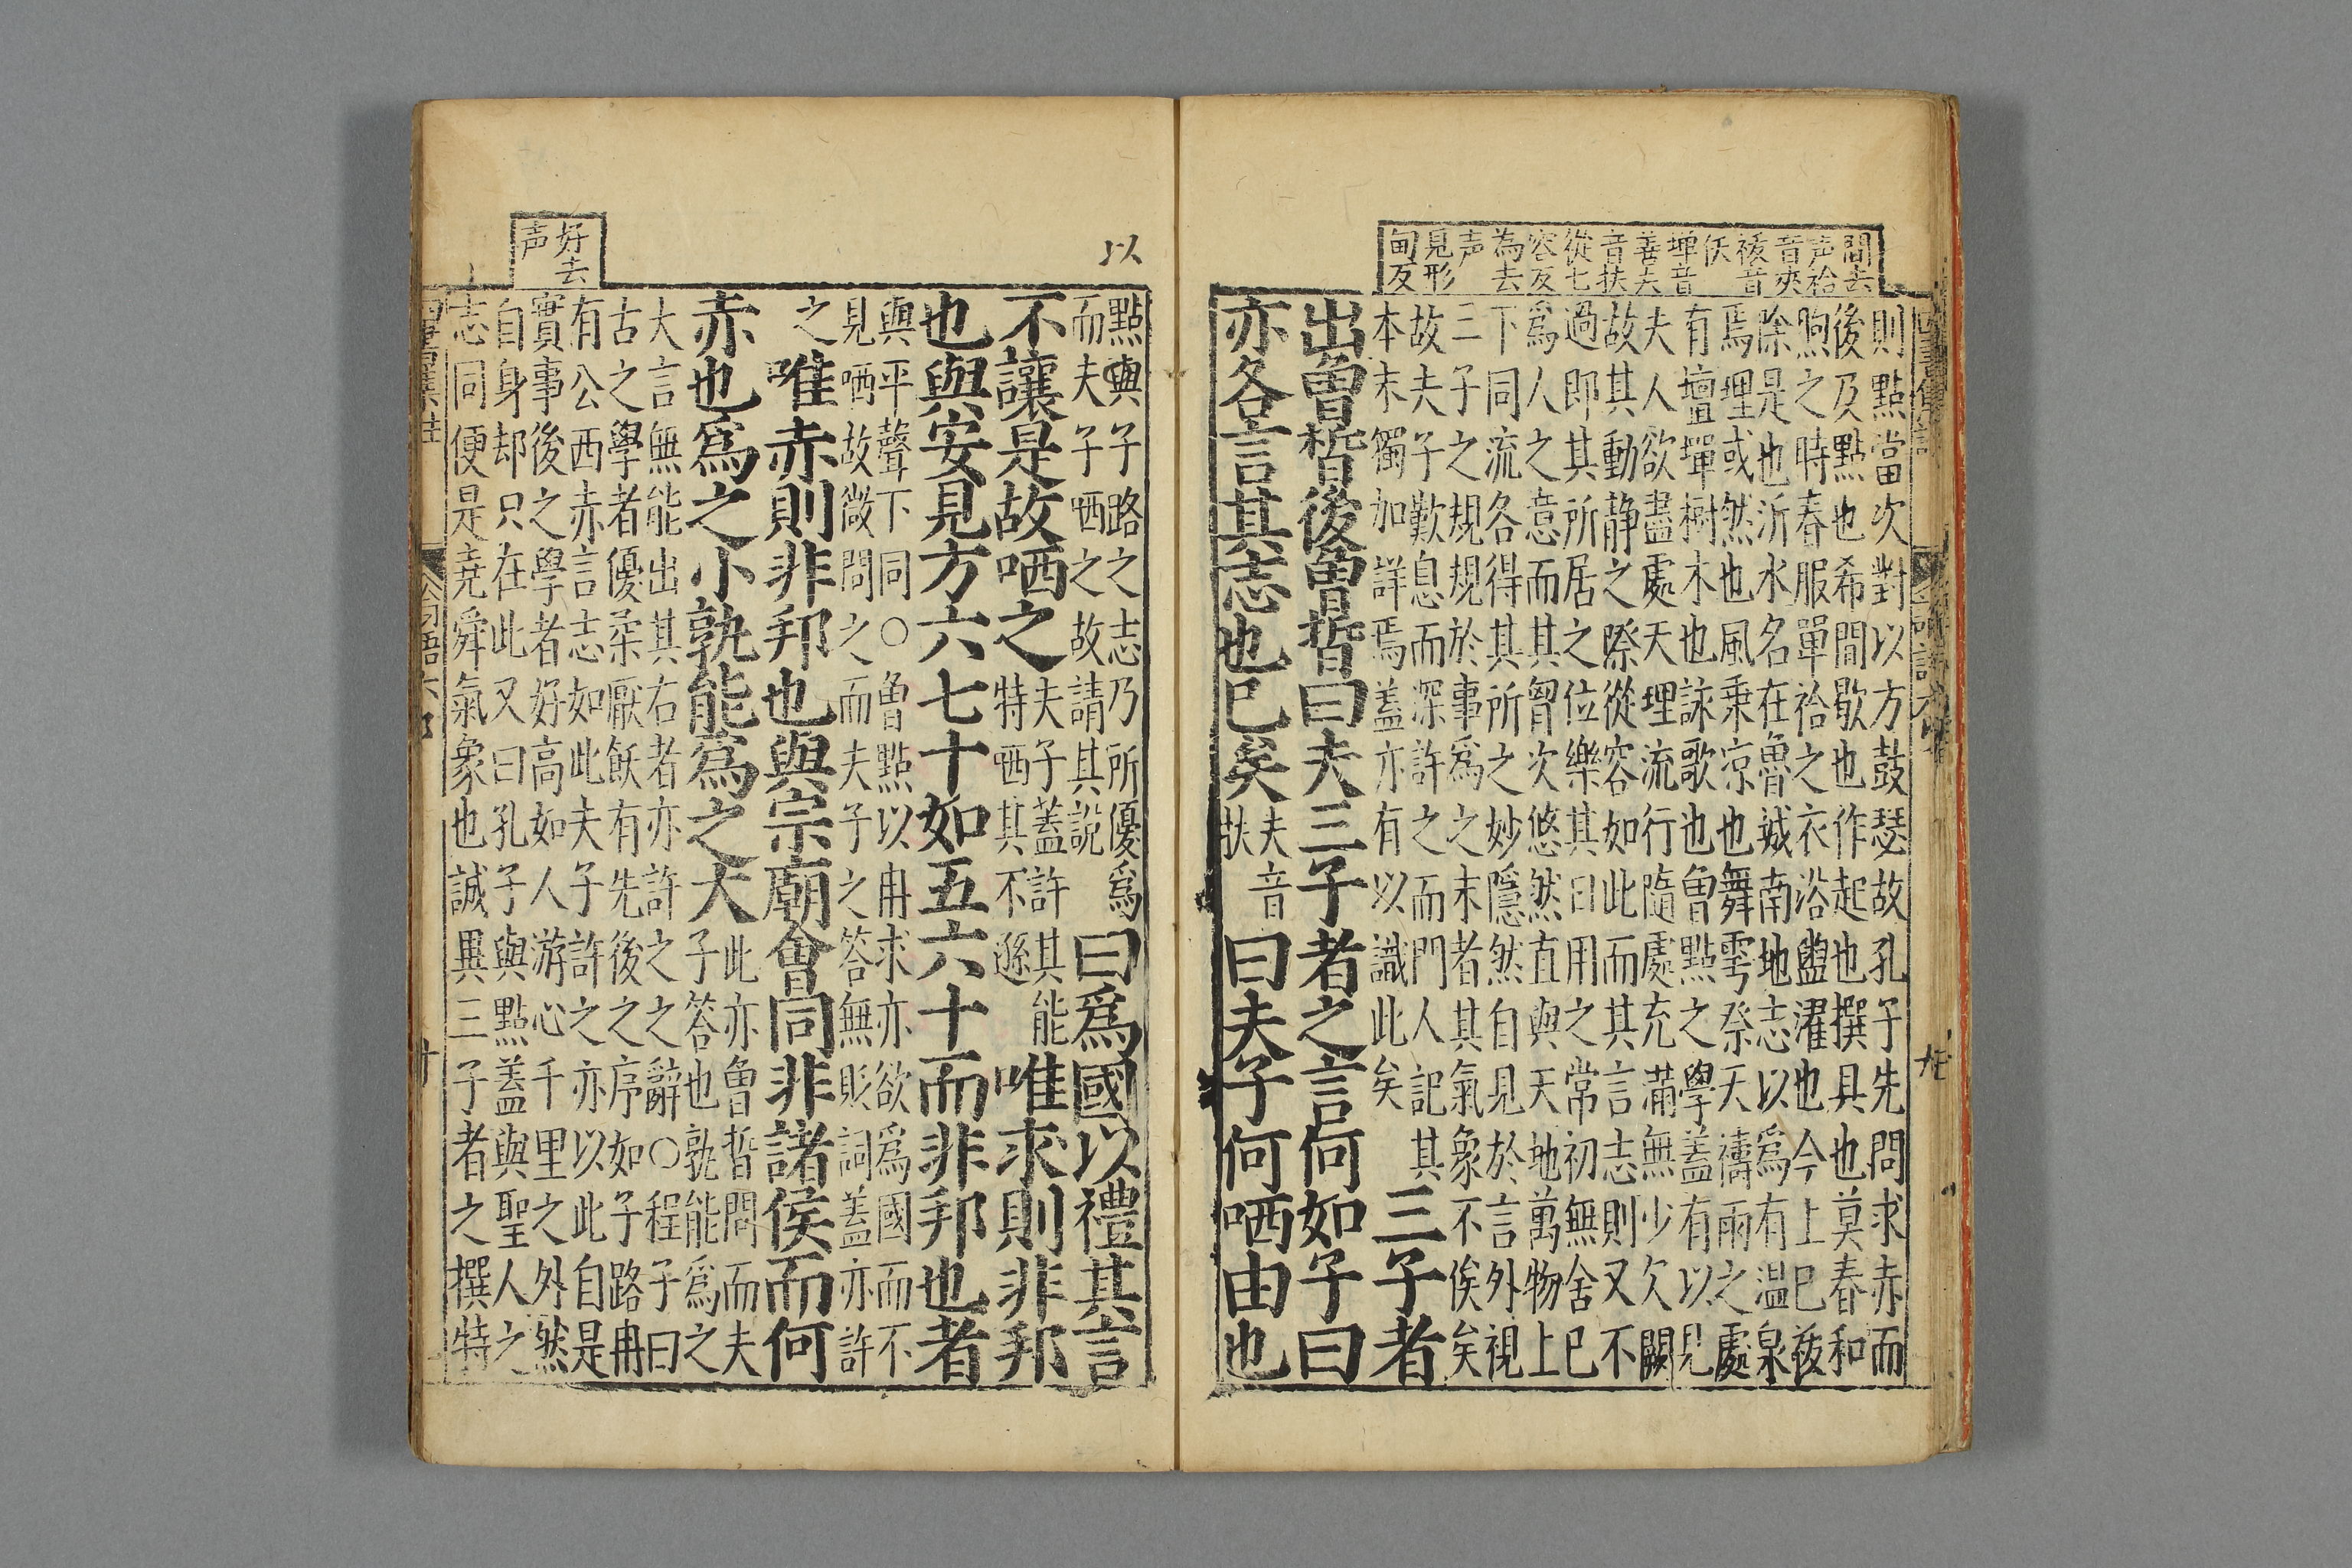 間去
声袷
音夾
祓音
㳀
墠音
善夫
音扶
從七
容反
為去
声
見形
甸反
則點當次對以方鼓瑟故孔子先問求赤而
後及點也希間歇也作起也撰具也莫春和
煦之時春服單袷之衣浴盥濯也今上巳祓
除是也沂水名在魯城南地志以爲有温泉
焉理或然也風乘凉也舞雩祭天禱雨之處
有壇墠樹木也詠歌也曾點之學蓋有以見
夫人欲盡處天理流行隨處充滿無少欠闕
故其動静之際從容如此而其言志則又不
過即其所居之位樂其日用之常初無舍已
爲人之意而其胷次悠然直與天地萬物上
下同流各得其所之妙隱然自見於言外視
三子之規規於事爲之末者其氣象不侔矣
故夫子歎息而深許之而門人記其
本末獨加詳焉蓋亦有以識此矣
三子者
出曾晳後曾晳曰夫三子者之言何如子曰
亦各言其志也已矣
夫音
扶
曰夫子何哂由也
以
點與子路之志乃所優爲
而夫子哂之故請其說
曰爲國以禮其言
不讓是故哂之
夫子蓋許其能
特哂其不遜
唯求則非邦
也與安見方六七十如五六十而非邦也者
與平聲下同○曾點以冉求亦欲爲國而不
見哂故微問之而夫子之答無貶詞蓋亦許
之
唯赤則非邦也與宗廟會同非諸侯而何
赤也爲之小孰能爲之大
此亦曾晳問而夫
子答也孰能爲之
大言無能出其右者亦許之之辭○程子曰
古之學者優柔厭飫有先後之序如子路冉
有公西赤言志如此夫子許之亦以此自是
實事後之學者好高如人游心千里之外然
自身却只在此又曰孔子與點蓋與聖人之
志同便是堯舜氣象也誠異三子者之撰特
好去
声